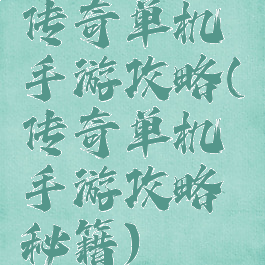 传奇单机
手游攻略(
传奇单机
手游攻略
秘籍)